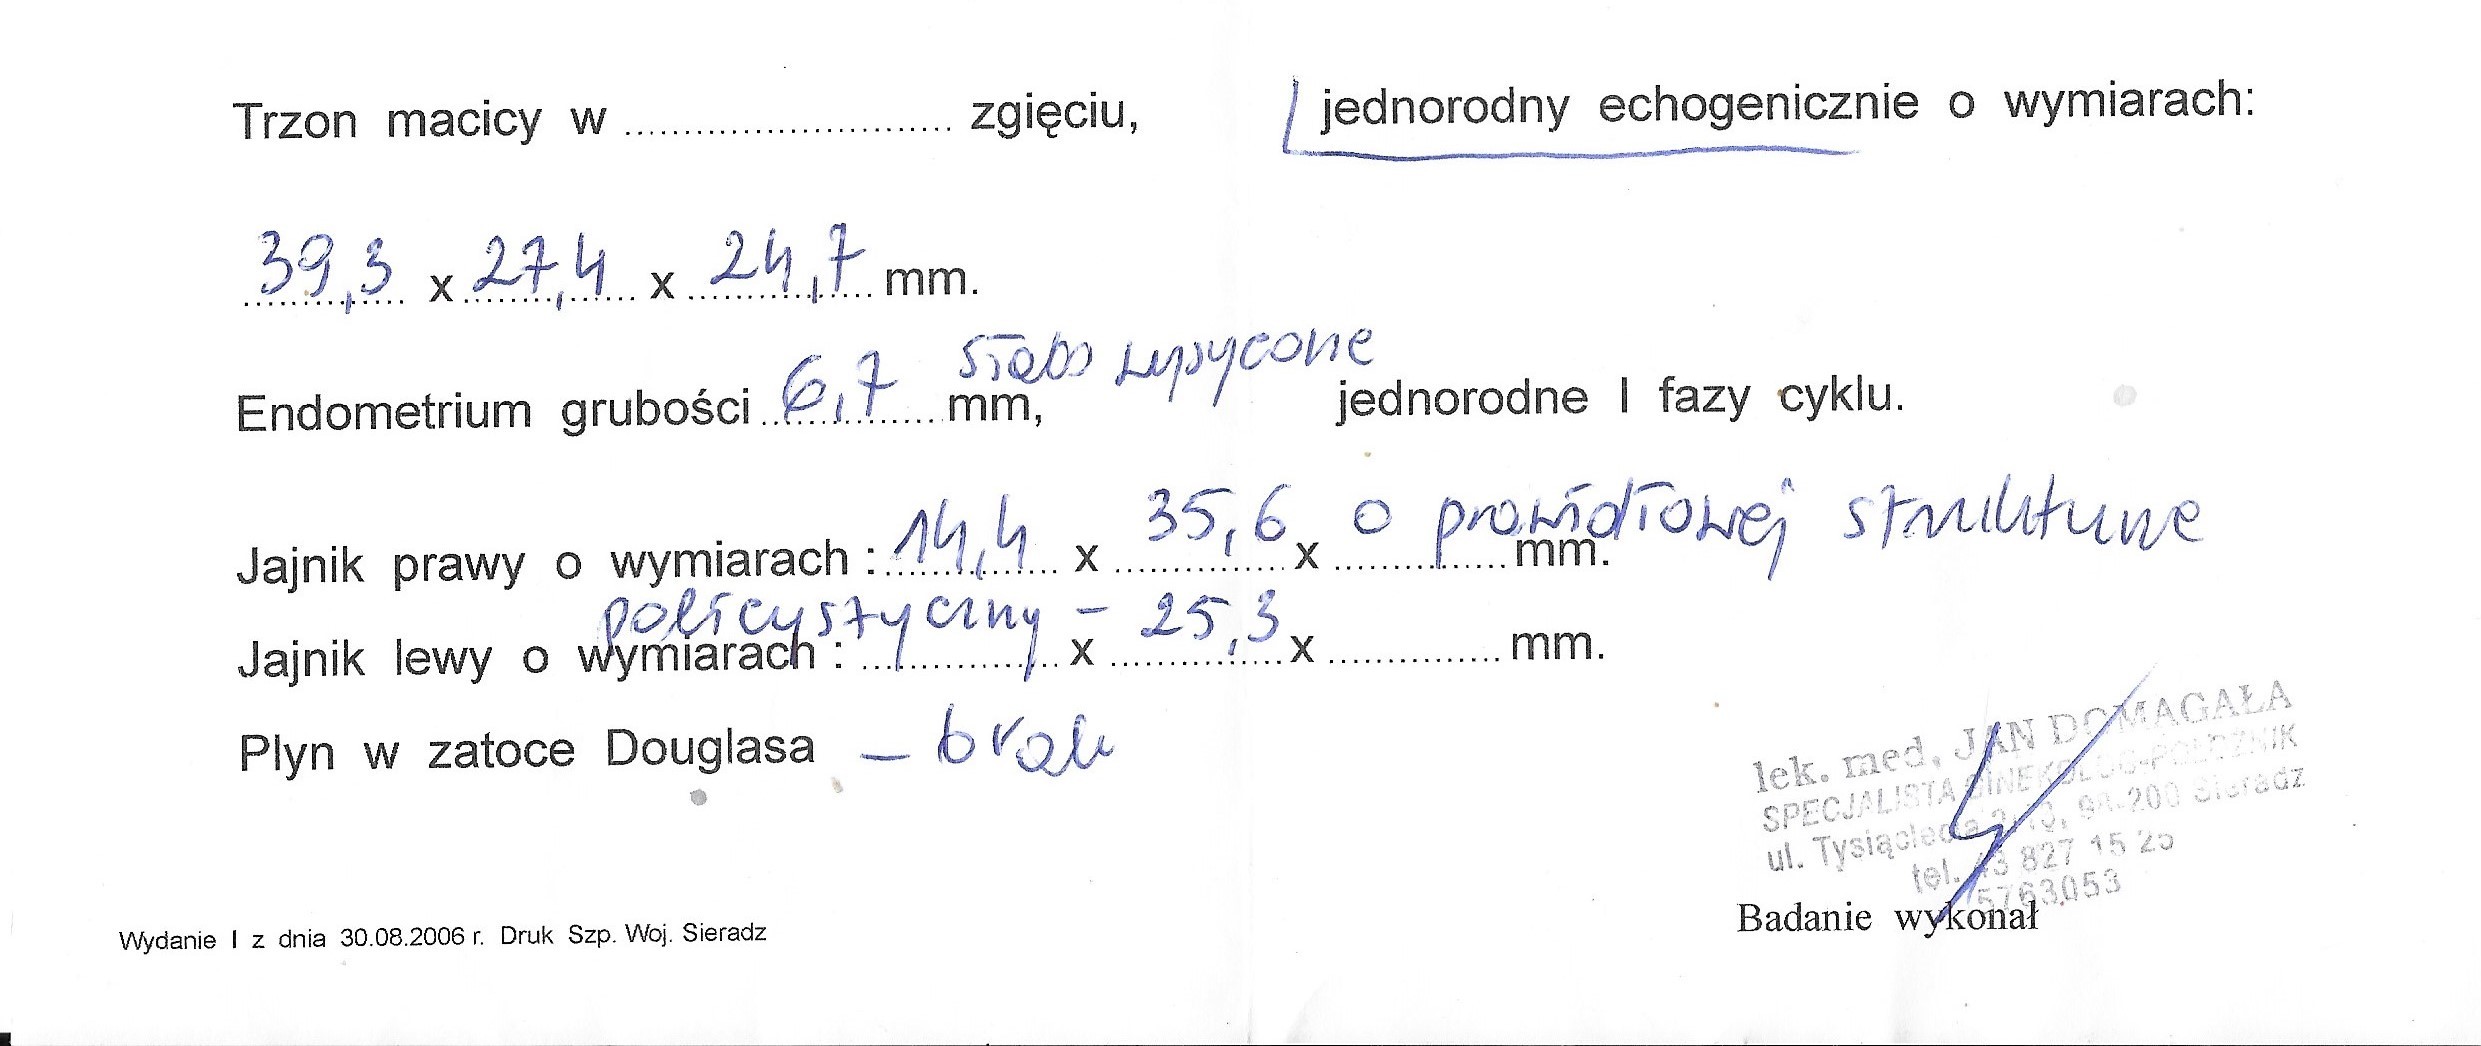 Trzon macicy w .............................. zgięciu, jednorodny echogenicznie o wymiarach:
39,3 x 27,4 x 24,7 mm.
słabo wysycone
Endometrium grubości 6,7 mm, jednorodne I fazy cyklu.
Jajnik prawy o wymiarach : 14,4 x 35,6 x ............... mm. o prawidłowej strukturze
policystyczny - 25,3
Jajnik lewy o wymiarach : ............... x ............... x ............... mm.
Plyn w zatoce Douglasa - brak
lek. med. JAN DOMAGAŁA
SPECJALISTA GINEKOLOG-POŁOŻNIK
ul. Tysiąclecia 98-200 Sieradz
tel. 43 827 15 25
5763053
Badanie wykonał
Wydanie I z dnia 30.08.2006 r. Druk Szp. Woj. Sieradz